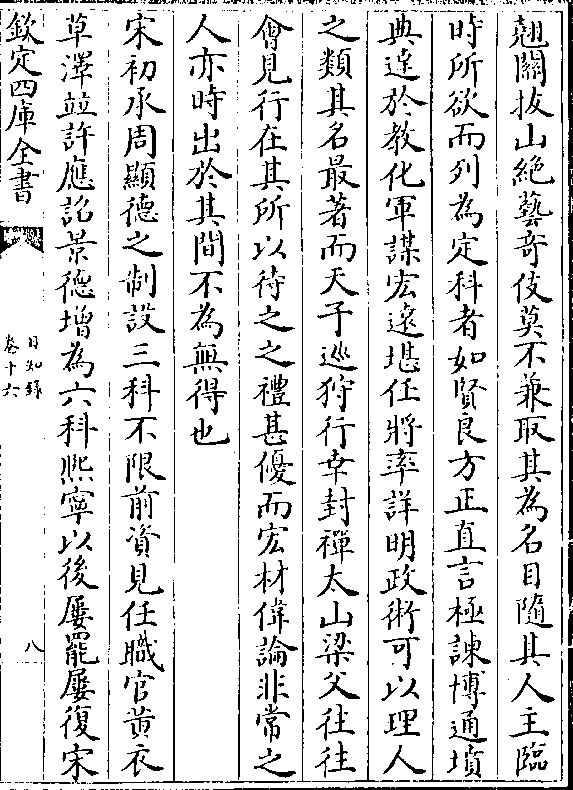 翹關拔山絶藝奇伎莫不兼取其為名目隨其人主臨
時所欲而列為定科者如賢良方正直言極諫博通墳
典達於教化軍謀宏遠堪任將率詳明政術可以理人
之類其名最著而天子巡狩行幸封禪太山梁父往往
㑹見行在其所以待之之禮甚優而宏材偉論非常之
人亦時出於其間不為無得也
宋初承周顯德之制設三科不限前資見任職官黄衣
草澤竝許應詔景德增為六科熙寧以後屢罷屢復宋
欽定四庫全書
日知録
卷十六
八